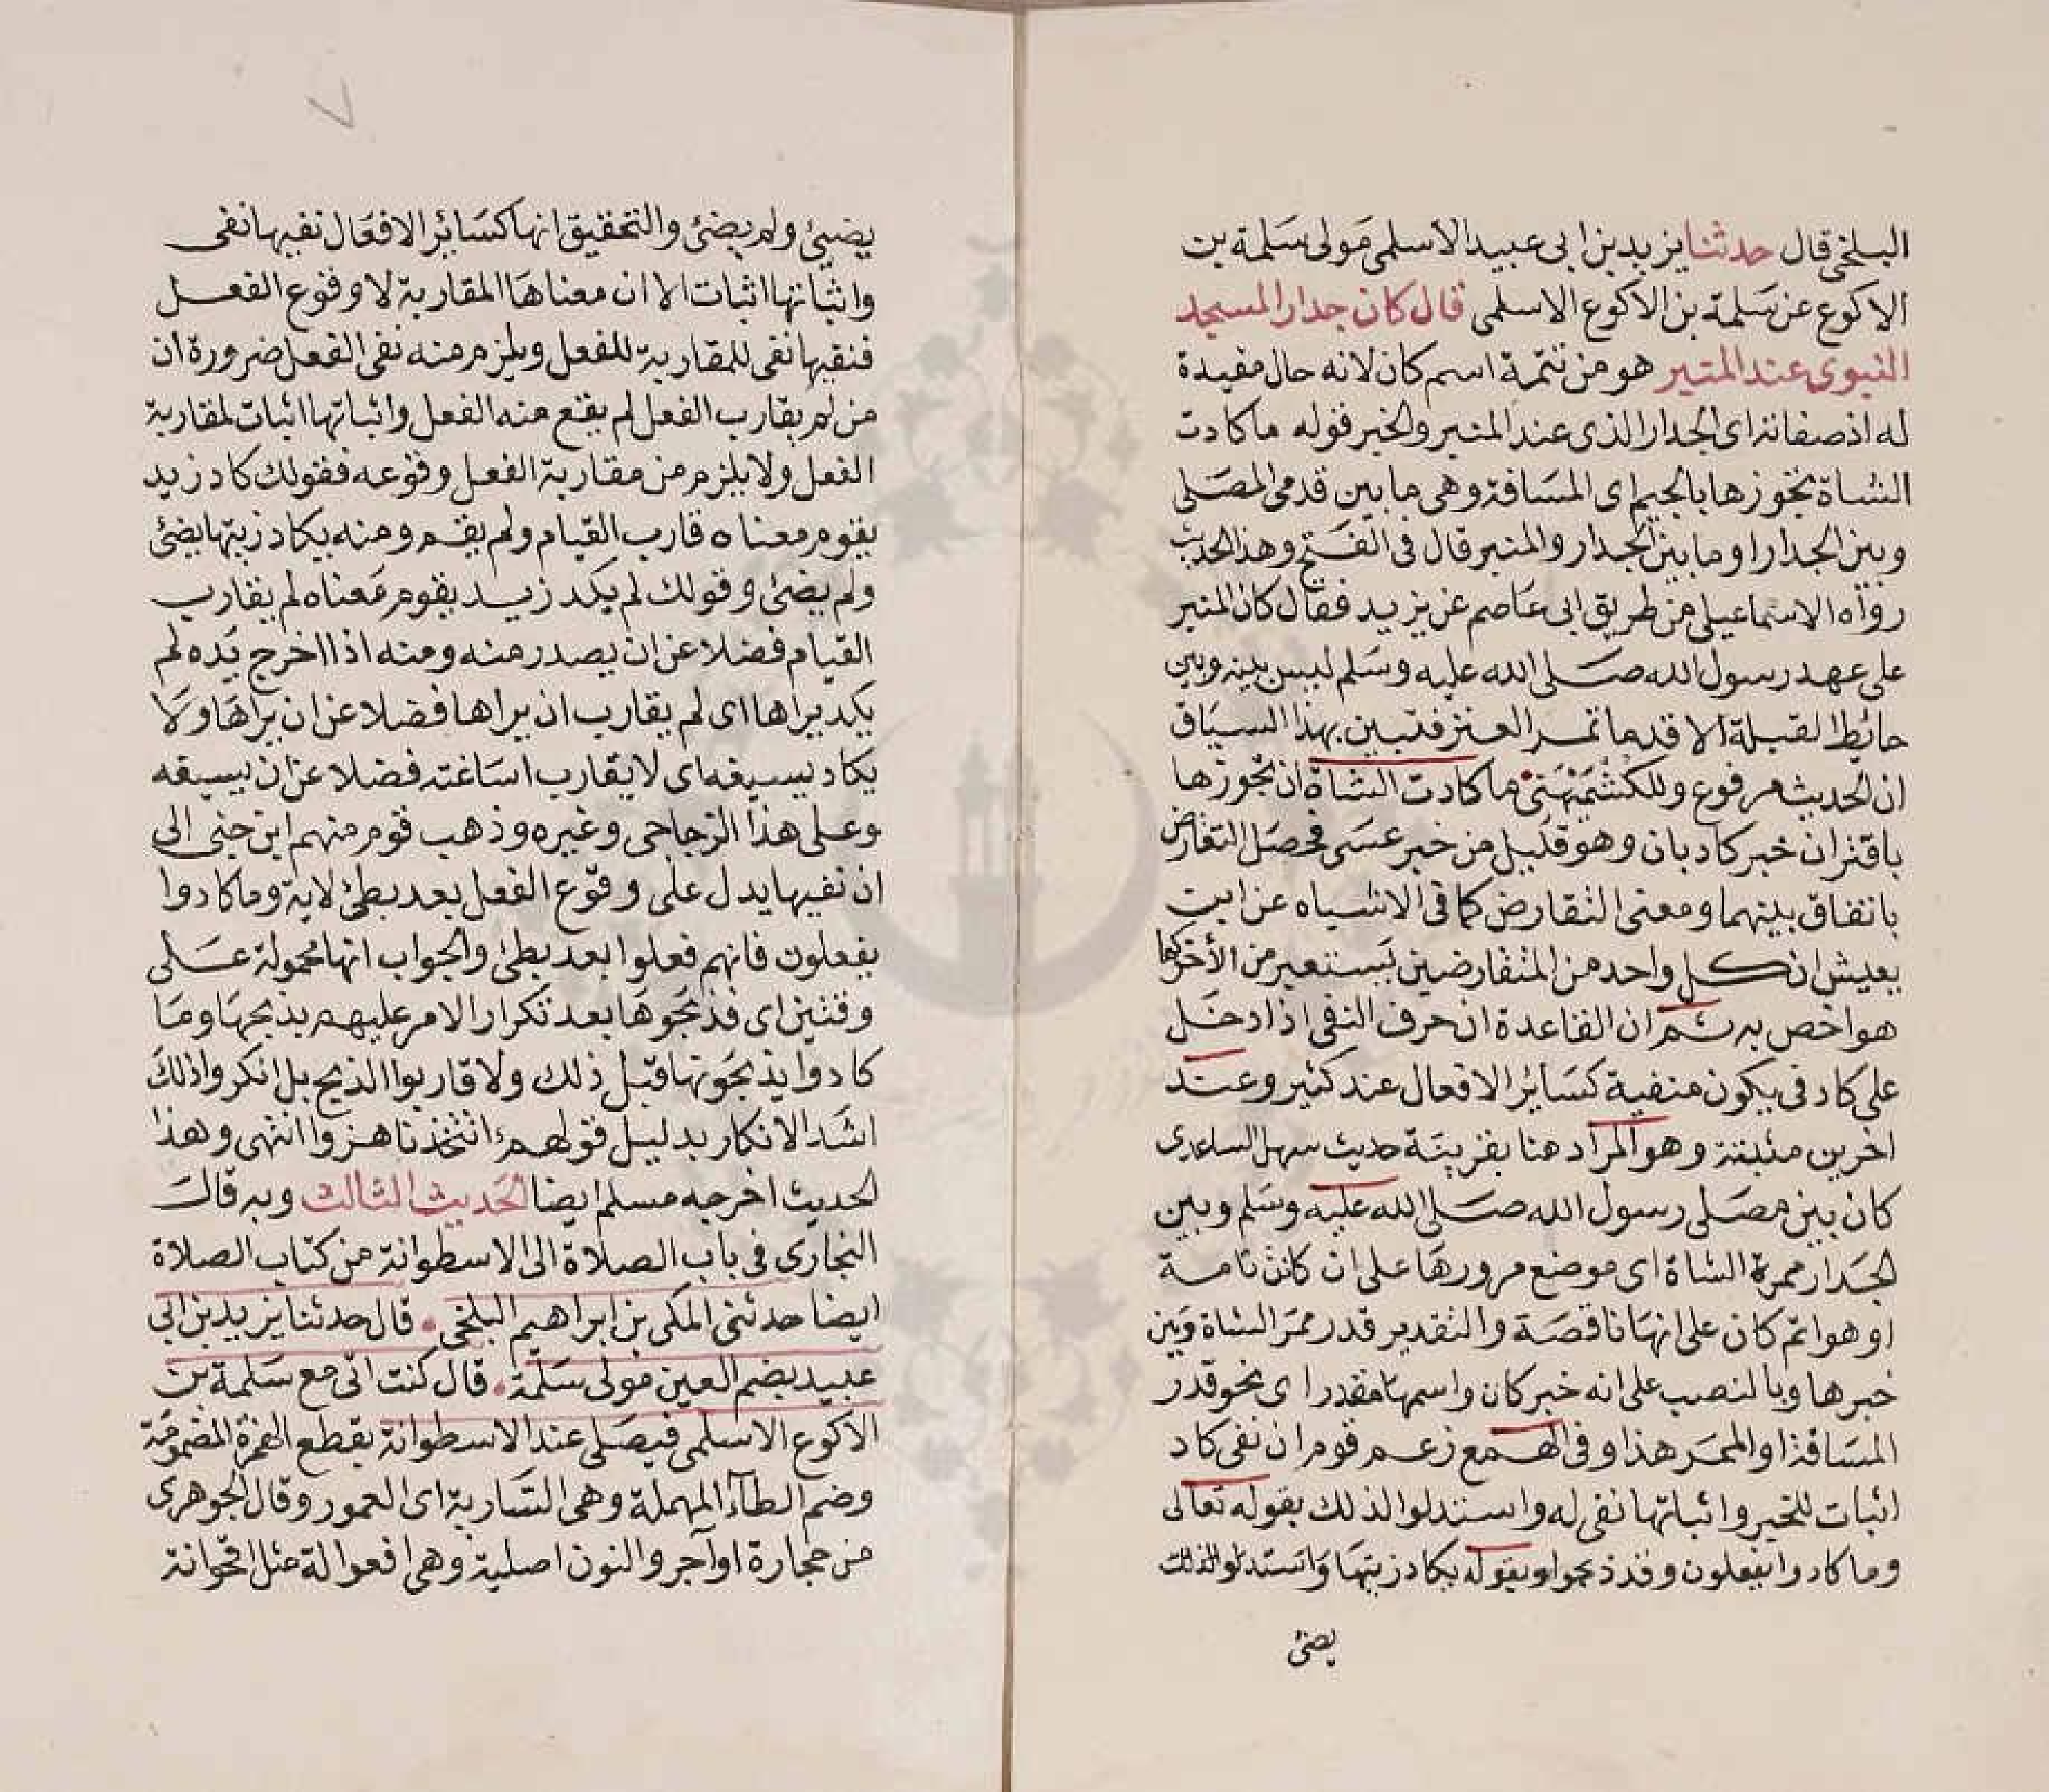 البلخي قال حدثنا يزيد بن ابى عبيد الاسلمي مولى سلمة بن
الاكوع عن سلمة بن الاكوع الاسلمى قال كان جدار المسجد
النبوى عند المنبر هو من تتمة اسم كان لانه حال مفيدة
له اذ صفاته اى الجدار الذى عند المنبر والخبر قوله ما كادت
الشاة تجوزها بالجيم اى المسافة وهى ما بين قدمى المصلى
وبين الجدار او ما بين الجدار والمنبر قال فى الفتح وهذا الحديث
رواه الاسماعيلى من طريق ابى عاصم عن يزيد فقال كان المنبر
على عهد رسول الله صلى الله عليه وسلم ليس بينه وبين
حائط القبلة الا قدر ما تمر العنز فتبين بهذا السياق
ان الحديث مرفوع وللكشميهنى ما كادت الشاة ان تجوزها
باقتران خبر كاد بان وهو قليل من خبر عسى فحصل التقارض
باتفاق بينهما ومعنى التقارض كما فى الاشباه عن ابن
يعيش ان كل واحد من المتقارضين يستعير من الآخر ما
هو اخص به ثم ان القاعدة ان حرف النفى اذا دخل
على كاد فى يكون منفية كسائر الافعال عند كثير وعند
اخرين مثبتة وهو المراد هنا بقرينة حديث سهل الساعدى
كان بين مصلى رسول الله صلى الله عليه وسلم وبين
الجدار ممرة الشاة اى موضع مرورها على ان كانت تامة
او هو اتم كان على انها ناقصة والتقدير قدر ممر الشاة وبين
خبرها وبالنصب على انه خبر كان واسمها مقدرا اى نحو قدر
المسافة او الممر هذا وفى الهمع زعم قوم ان نفى كاد
اثبات للخبر واثباتها نفى له واستدلوا لذلك بقوله تعالى
وما كادوا يفعلون وقد ذبحوا وبقوله يكاد زيتها واستدلوا لذلك
يضئ
يضيئ ولم يضئ والتحقيق انها كسائر الافعال نفيها نفى
واثباتها اثبات الا ان معناها المقاربة لا وقوع الفعل
فنفيها نفى للمقاربة للفعل ويلزم منه نفى الفعل ضرورة ان
من لم يقارب الفعل لم يقع منه الفعل واثباتها اثبات لمقاربة
الفعل ولا يلزم من مقاربة الفعل وقوعه فقولك كاد زيد
يقوم معناه قارب القيام ولم يقم ومنه يكاد زيتها يضئ
ولم يضئ وقولك لم يكد زيد يقوم معناه لم يقارب
القيام فضلا عن ان يصدر منه ومنه اذا اخرج يده لم
يكد يراها اى لم يقارب ان يراها فضلا عن ان يراها ولا
يكاد يسيغه اى لا يقارب اساغته فضلا عن ان يسيغه
وعلى هذا الزجاجى وغيره وذهب قوم منهم ابن جنى الى
ان نفيها يدل على وقوع الفعل بعد بطئ لاية وما كادوا
يفعلون فانهم فعلوا بعد بطئ والجواب انها محمولة على
وقتين اى فذبحوها بعد تكرار الامر عليهم بذبحها وما
كادوا يذبحونها قبل ذلك ولا قاربوا الذبح بل انكروا ذلك
اشد الانكار بدليل قولهم اتتخذنا هزوا انتهى وهذا
الحديث اخرجه مسلم ايضا الحديث الثالث وبه قال
البخارى فى باب الصلاة الى الاسطوانة من كتاب الصلاة
ايضا حدثنى المكى بن ابراهيم البلخى . قال حدثنا يزيد بن ابى
عبيد بضم العين مولى سلمة . قال كنت اتى مع سلمة بن
الاكوع الاسلمى فيصلى عند الاسطوانة بقطع الهمزة المضمومة
وضم الطاء المهملة وهى السارية اى العمور وقال الجوهرى
من حجارة او آجر والنون اصلية وهى افعوالة مثل اقحوانة